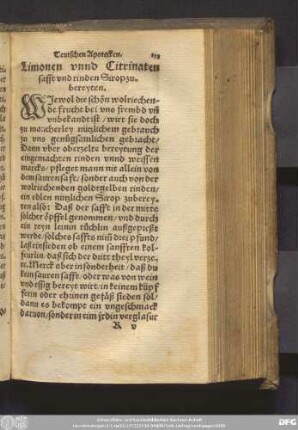 Teutschen Apotecken.
Limonen vnnd Citrinaten
safft vnd rinden Siropzu-
bereyten.
WJewol die schön wolriechen-
de frucht bei vns frembd vñ
vnbekandt ist / wirt sie doch
zu mancherley nützlichem gebrauch
zu vns genůgsamlichen gebracht /
Dann vber oberzelte bereytung der
eingemachten rinden vnnd weissen
marcks / pfleget mann nit allein von
dem sauren safft / sonder auch von der
wolriechenden goldtgelben rinden /
in edlen nützlichen Sirop zuberey-
ten also: Daß der safft in der mitte
solcher öpffel genommen / vnd durch
ein reyn leinin tüchlin außgepreßt
werde / solches saffts nim drei pfund /
laß ein sieden ob einem sanfften kol-
feurlin / daß sich der dritt theyl verze-
re. Merck aber in sonderheit / daß du
kein sauren safft / oder was von wein
vnd essig bereyt wirt / in keinem küp
fferin oder ehrinen gefäß sieden solt
dann es bekompt ein vngeschmack
daruon / sonder in eim jrdin verglasur
R v